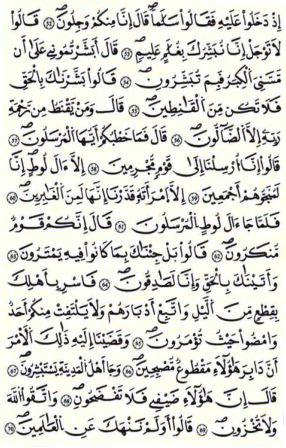 إِذْ دَخَلُوا۟ عَلَيْهِ فَقَالُوا۟ سَلَٰمًا قَالَ إِنَّا مِنكُمْ وَجِلُونَ ۝٥٢ قَالُوا۟
لَا تَوْجَلْ إِنَّا نُبَشِّرُكَ بِغُلَٰمٍ عَلِيمٍ ۝٥٣ قَالَ أَبَشَّرْتُمُونِى عَلَىٰٓ أَن
مَّسَّنِىَ ٱلْكِبَرُ فَبِمَ تُبَشِّرُونَ ۝٥٤ قَالُوا۟ بَشَّرْنَٰكَ بِٱلْحَقِّ
فَلَا تَكُن مِّنَ ٱلْقَٰنِطِينَ ۝٥٥ قَالَ وَمَن يَقْنَطُ مِن رَّحْمَةِ
رَبِّهِۦٓ إِلَّا ٱلضَّآلُّونَ ۝٥٦ قَالَ فَمَا خَطْبُكُمْ أَيُّهَا ٱلْمُرْسَلُونَ ۝٥٧
قَالُوٓا۟ إِنَّآ أُرْسِلْنَآ إِلَىٰ قَوْمٍ مُّجْرِمِينَ ۝٥٨ إِلَّآ ءَالَ لُوطٍ إِنَّا
لَمُنَجُّوهُمْ أَجْمَعِينَ ۝٥٩ إِلَّا ٱمْرَأَتَهُۥ قَدَّرْنَآ إِنَّهَا لَمِنَ ٱلْغَٰبِرِينَ ۝٦٠
فَلَمَّا جَآءَ ءَالَ لُوطٍ ٱلْمُرْسَلُونَ ۝٦١ قَالَ إِنَّكُمْ قَوْمٌ
مُّنكَرُونَ ۝٦٢ قَالُوا۟ بَلْ جِئْنَٰكَ بِمَا كَانُوا۟ فِيهِ يَمْتَرُونَ ۝٦٣
وَأَتَيْنَٰكَ بِٱلْحَقِّ وَإِنَّا لَصَٰدِقُونَ ۝٦٤ فَأَسْرِ بِأَهْلِكَ
بِقِطْعٍ مِّنَ ٱلَّيْلِ وَٱتَّبِعْ أَدْبَٰرَهُمْ وَلَا يَلْتَفِتْ مِنكُمْ أَحَدٌ
وَٱمْضُوا۟ حَيْثُ تُؤْمَرُونَ ۝٦٥ وَقَضَيْنَآ إِلَيْهِ ذَٰلِكَ ٱلْأَمْرَ
أَنَّ دَابِرَ هَٰٓؤُلَآءِ مَقْطُوعٌ مُّصْبِحِينَ ۝٦٦ وَجَآءَ أَهْلُ ٱلْمَدِينَةِ يَسْتَبْشِرُونَ ۝٦٧
قَالَ إِنَّ هَٰٓؤُلَآءِ ضَيْفِى فَلَا تَفْضَحُونِ ۝٦٨ وَٱتَّقُوا۟ ٱللَّهَ
وَلَا تُخْزُونِ ۝٦٩ قَالُوٓا۟ أَوَلَمْ نَنْهَكَ عَنِ ٱلْعَٰلَمِينَ ۝٧٠